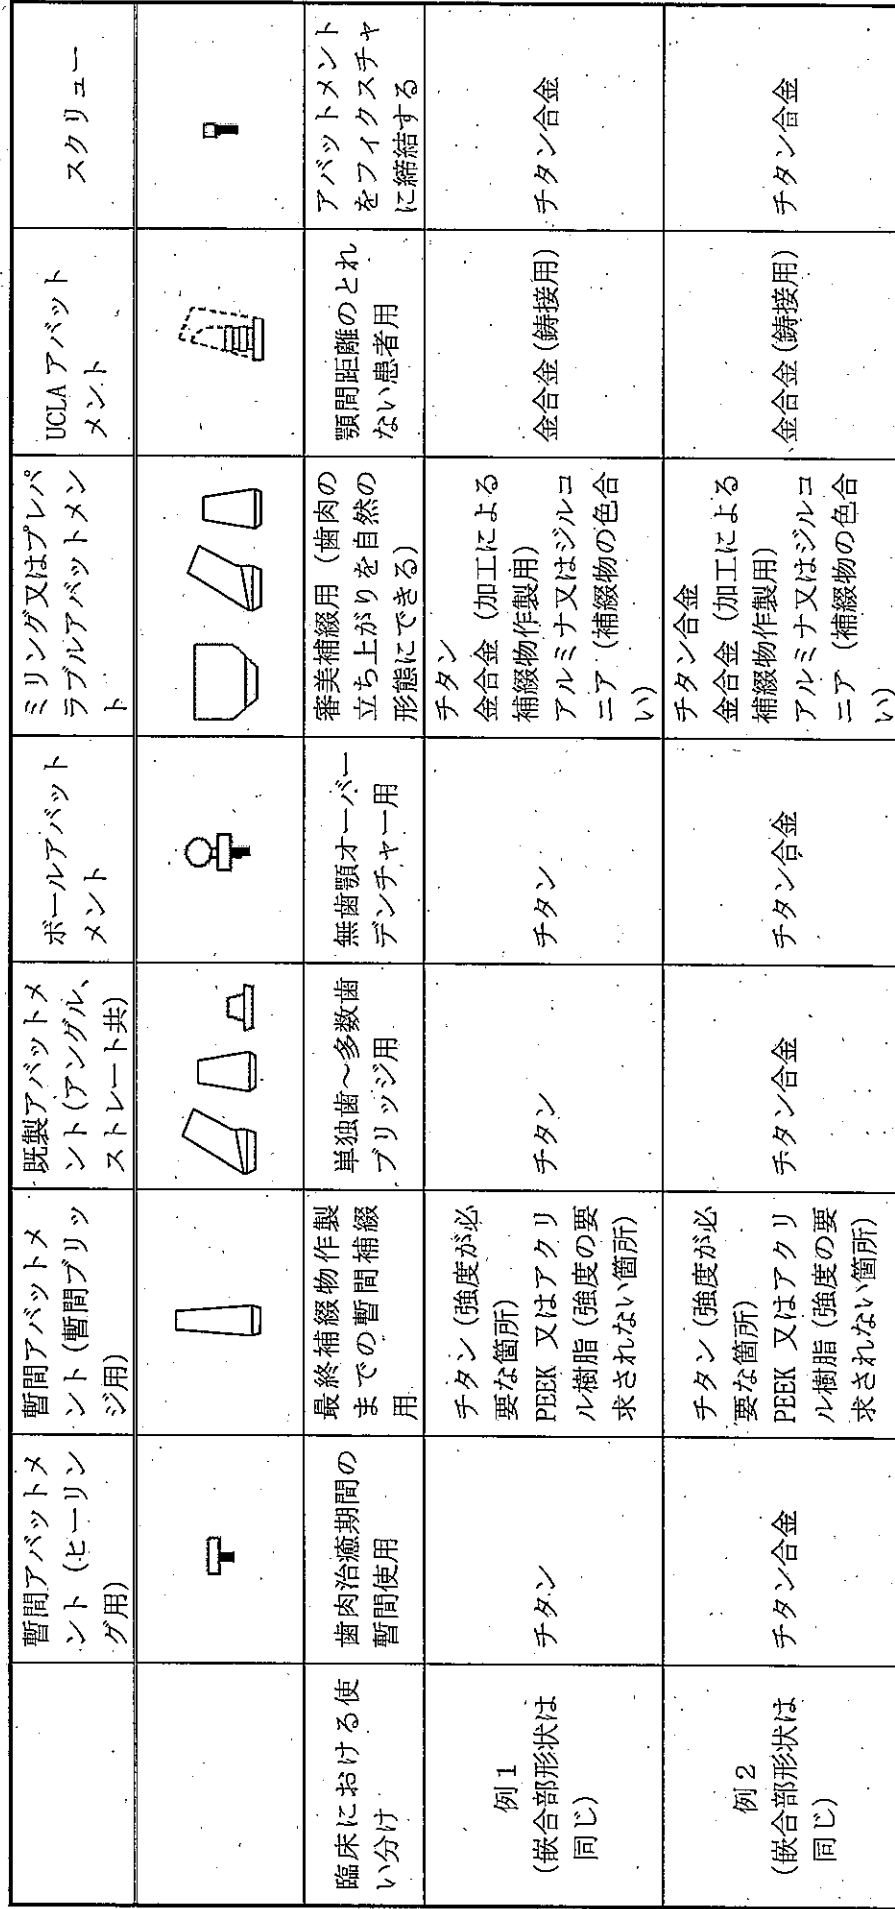 暫間アバットメ
ント（ヒーリン
グ用）
暫間アバットメ
ント（暫間ブリッ
ジ用）
既製アバットメ
ント（アングル、
ストレート共）
ボールアバット
メント
ミリング又はプレパ
ラブルアバットメン
ト
UCLAアバット
メント
スクリュー
臨床における使
い分け
歯肉治癒期間の
暫間使用
最終補綴物作製
までの暫間補綴
用
単独歯～多数歯
ブリッジ用
無歯顎オーバー
デンチャー用
審美補綴用（歯肉の
立ち上がりを自然の
形態にできる）
顎間距離のとれ
ない患者用
アバットメント
をフィクスチャ
に締結する
例１
（嵌合部形状は
同じ）
チタン
チタン（強度が必
要な箇所）
PEEK 又はアクリ
ル樹脂（強度の要
求されない箇所）
チタン
チタン
チタン
金合金（加工による
補綴物作製用）
アルミナ又はジルコ
ニア（補綴物の色合
い）
金合金（鋳接用）
チタン合金
例２
（嵌合部形状は
同じ）
チタン合金
チタン（強度が必
要な箇所）
PEEK 又はアクリ
ル樹脂（強度の要
求されない箇所）
チタン合金
チタン合金
チタン合金
金合金（加工による
補綴物作製用）
アルミナ又はジルコ
ニア（補綴物の色合
い）
金合金（鋳接用）
チタン合金